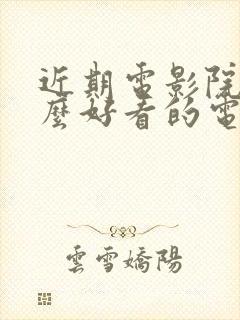 近期電影院
麼好看的電
雲雪嬌陽